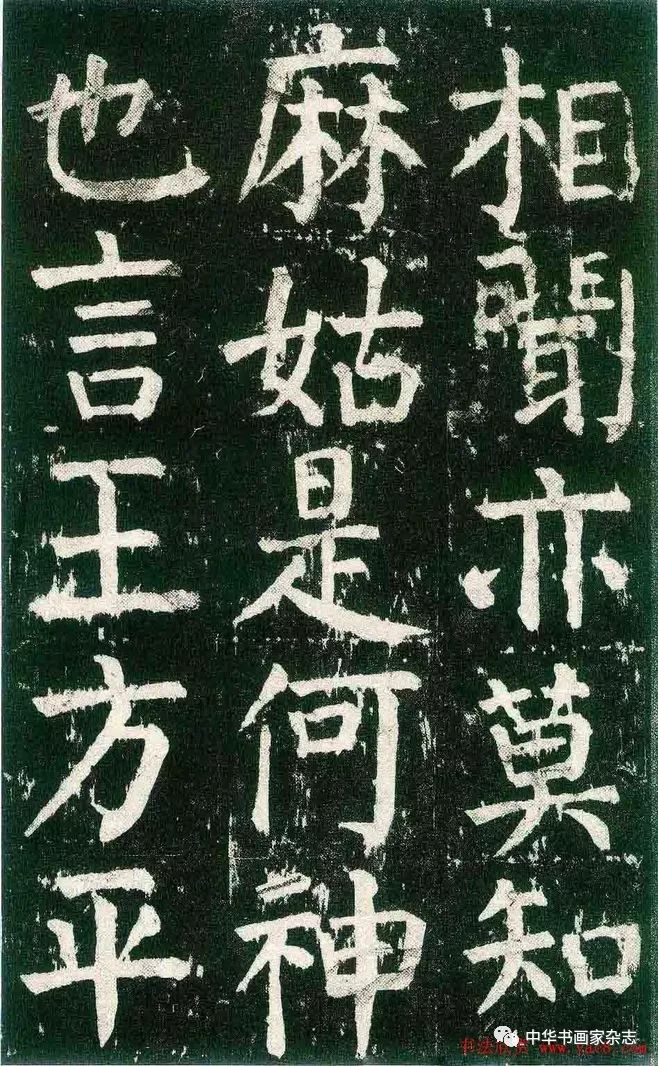 相聞亦莫知
麻姑是何神
也言王方平
中华书画家杂志
书法欣赏 www.yac8.com